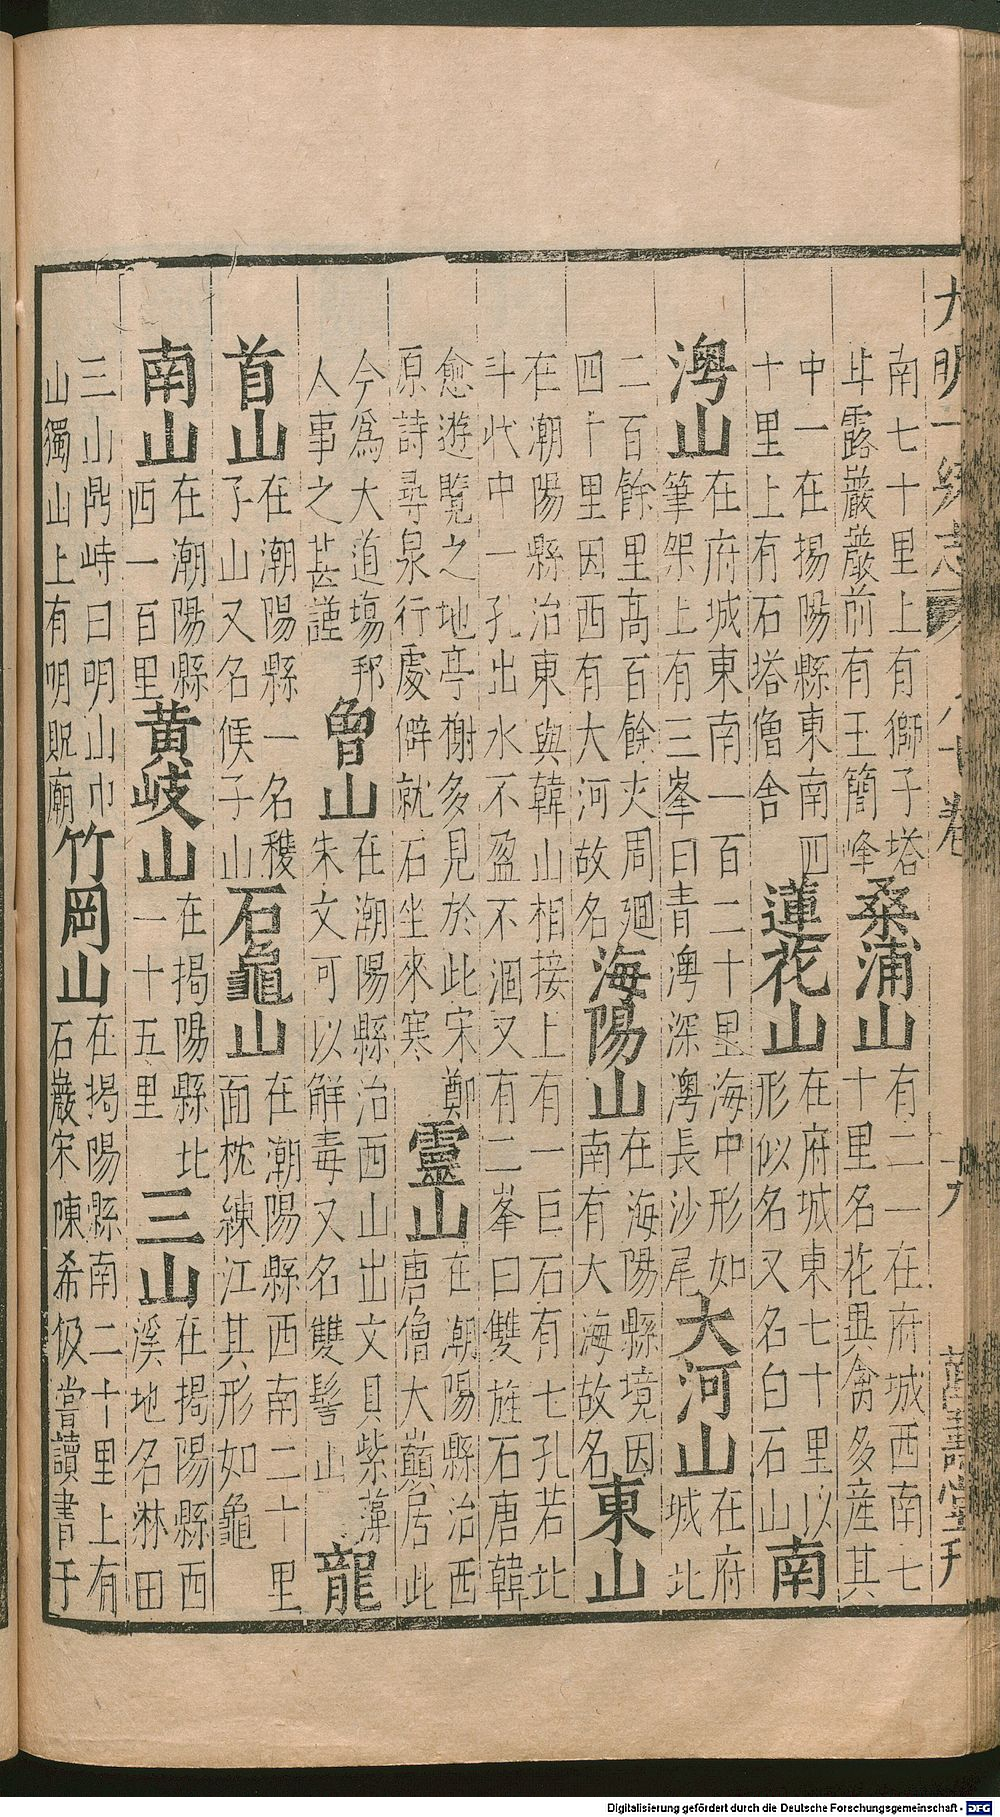 南七十里上有獅子塔
斗露巖巖前有王簡峰
桑浦山
有二一在府城西南七
十里名花異禽多産其
中一在揚陽縣東南四
十里上有石塔僧舍
蓮花山
在府城東七十里以
形似名又名白石山
南
澳山
在府城東南一百二十里海中形如
筆架上有三峯曰青澳深澳長沙尾
大河山
在府城北
二百餘里高百餘丈周廻
四十里因西有大河故名
海陽山
在海陽縣境因
南有大海故名
東山
在潮陽縣治東與韓山相接上有一巨石有七孔若北
斗状中一孔出水不盈不涸又有二峯曰雙旌石唐韓
愈遊覽之地亭榭多見於此宋鄭
原詩尋泉行處僻就石坐來寒
靈山
在潮陽縣治西
唐僧大巔居此
今爲大道場邦
人事之甚謹
曾山
在潮陽縣治西山出文貝紫藻
朱文可以解毒又名雙髻山
龍
首山
在潮陽縣一名𫉬
子山又名候子山
石龜山
在潮陽縣西南二十里
面枕練江其形如龜
南山
在潮陽縣
西一百里
黃岐山
在揭陽縣北
一十五里
三山
在揭陽縣西
溪地名淋田
三山鼎峙曰明山巾
山獨山上有明貺廟
竹岡山
在揭陽縣南二十里上有
石巖宋陳希伋嘗讀書于
大明一統志
卷
十九
萬壽堂刊
Digitalisierung gefördert durch die Deutsche Forschungsgemeinschaft - DFG